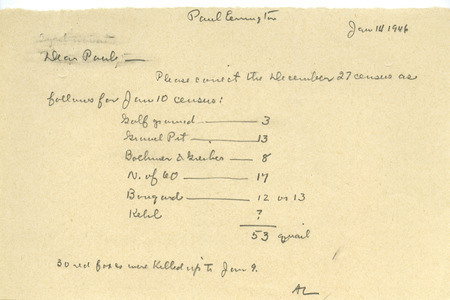 Paul Errington
Jan 14 1946
Dear Paul -
Please correct the December 27 census as
follows for Jan 10 census:
Golf ground 3
Gravel Pit 13
Bochmer & Greiber 8
N. of 60 17
Bongard 12 or 13
Kehl ?
53 quail
30 red foxes were killed up to Jan 9.
AL